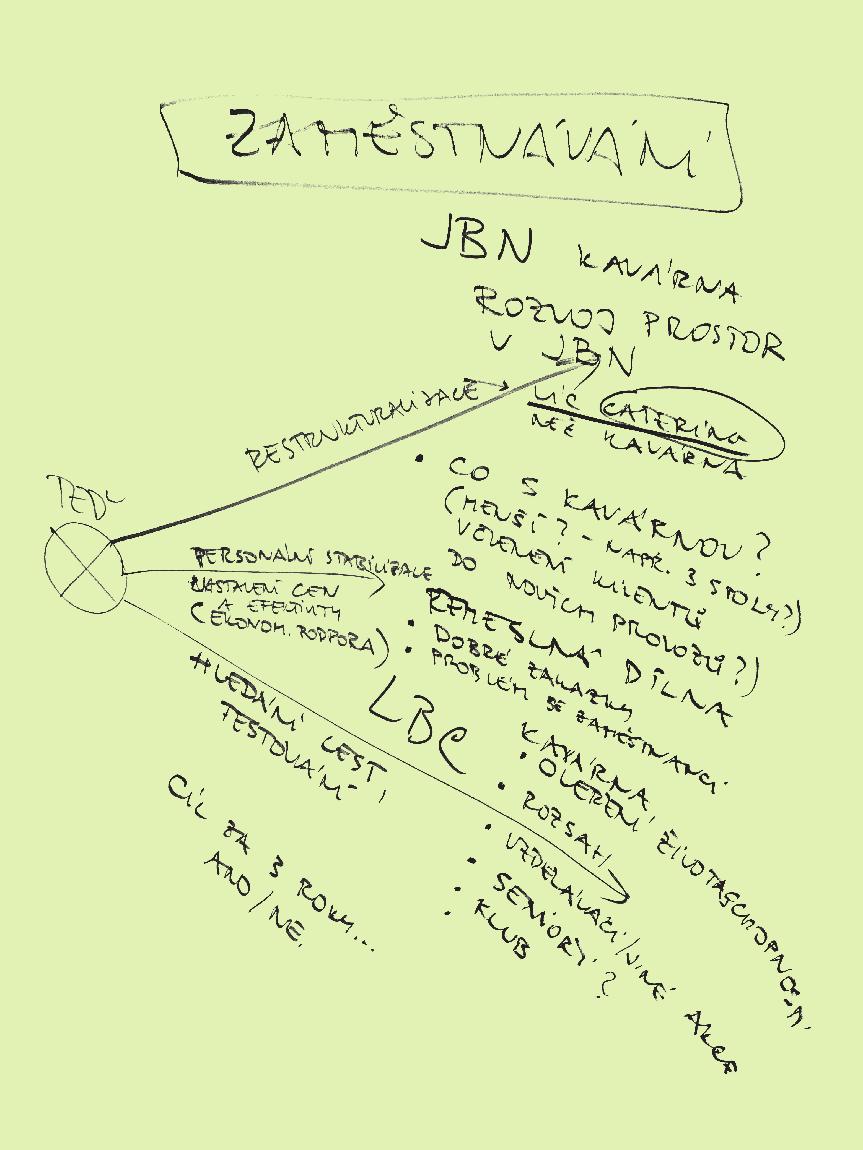 ZAMĚSTNÁVÁNÍ
JBN KAVÁRNA
ROZVOJ PROSTOR
V JBN
VÍC CATERING
NEŽ KAVÁRNA
RESTRUKTURALIZACE
• CO S KAVÁRNOU?
(MENŠÍ? - NAPŘ. 3 STOLY?)
VČLENĚNÍ KLIENTŮ
DO NOVÝCH PROVOZŮ?)
TEĎ
PERSONÁLNÍ STABILIZACE
NASTAVENÍ CEN
A EFEKTIVITY
(EKONOM. PODPORA)
ŘEMESLNÁ DÍLNA
• DOBRÉ ZAKÁZKY
• PROBLÉM SE ZAMĚSTNANCI
HLEDÁNÍ CEST,
TESTOVÁNÍ
LBC
KAVÁRNA
• OVĚŘENÍ ŽIVOTASCHOPNOSTI
• ROZSAH
• VZDĚLÁVACÍ/JINÉ AKCE
• SENIOŘI?
• KLUB
•
CÍL ZA 3 ROKY...
ANO/NE.